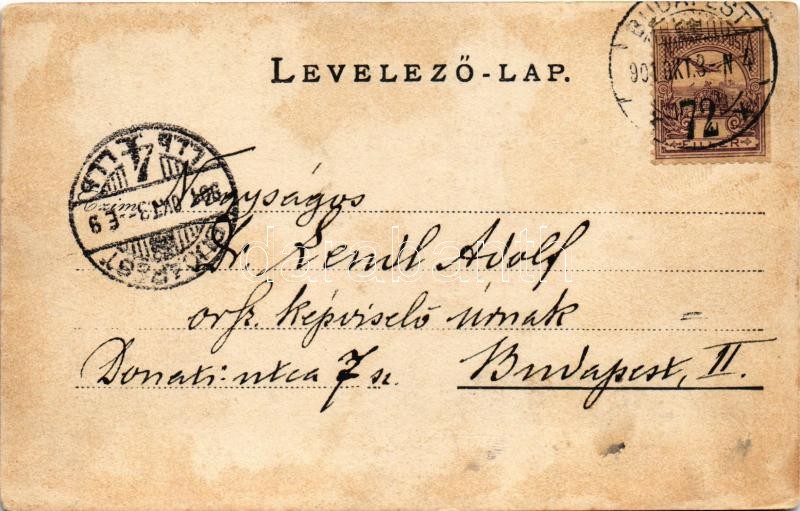 LEVELEZŐ-LAP.
BUDAPEST
901 OKT. 3 - N 4
72
MAGYAR KIR. POSTA
FILLÉR
BUDAPEST
901 OKT. 3
E 9
Nagyságos
Dr. Lendl Adolf
orsz. képviselő úrnak
Donati-utca 7 sz. Budapest, II.
darabanth